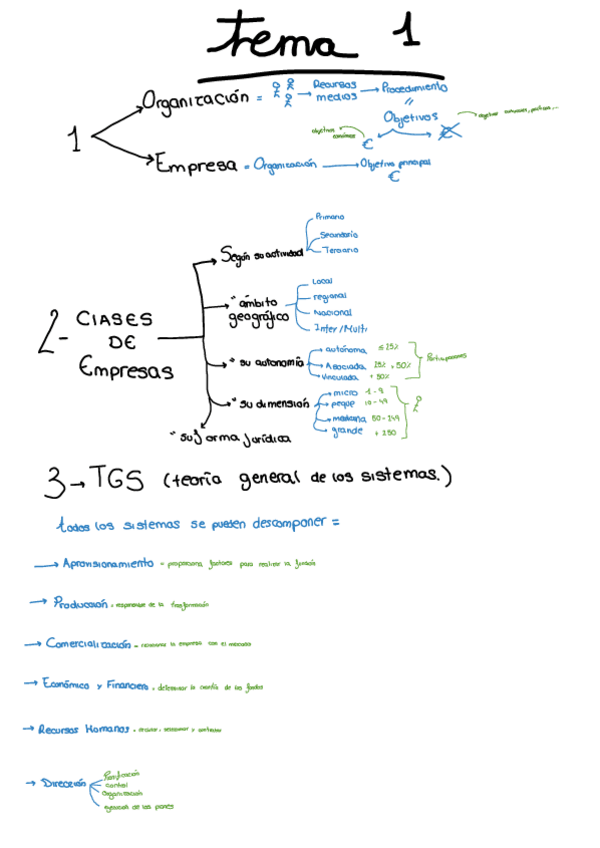 tema 1
1
Organización = Recursos medios → Procedimiento
Objetivos
objetivos económicos
€
€
Empresa = Organización → Objetivo principal
€
2- Clases de Empresas
Según su actividad
Primario
Secundario
Terciario
" ámbito geográfico
Local
regional
Nacional
Inter/Multi
" su autonomía
autónoma ≤25%
Asociada 25% , 50%
Vinculada + 50%
Participaciones
" su dimensión
micro 1-9
peque 10-49
mediana 50-249
grande + 250
" su forma jurídica
3→TGS (teoría general de los sistemas.)
todos los sistemas se pueden descomponer =
→ Aprovisionamiento = proporciona factores para realizar la función
→ Producción = de la transformación
→ Comercialización = la empresa con el mercado
→ Económico y Financiero = determinar la de los fondos
→ Recursos Humanos =
→ Dirección
Planificación
control
Organización
de los planes